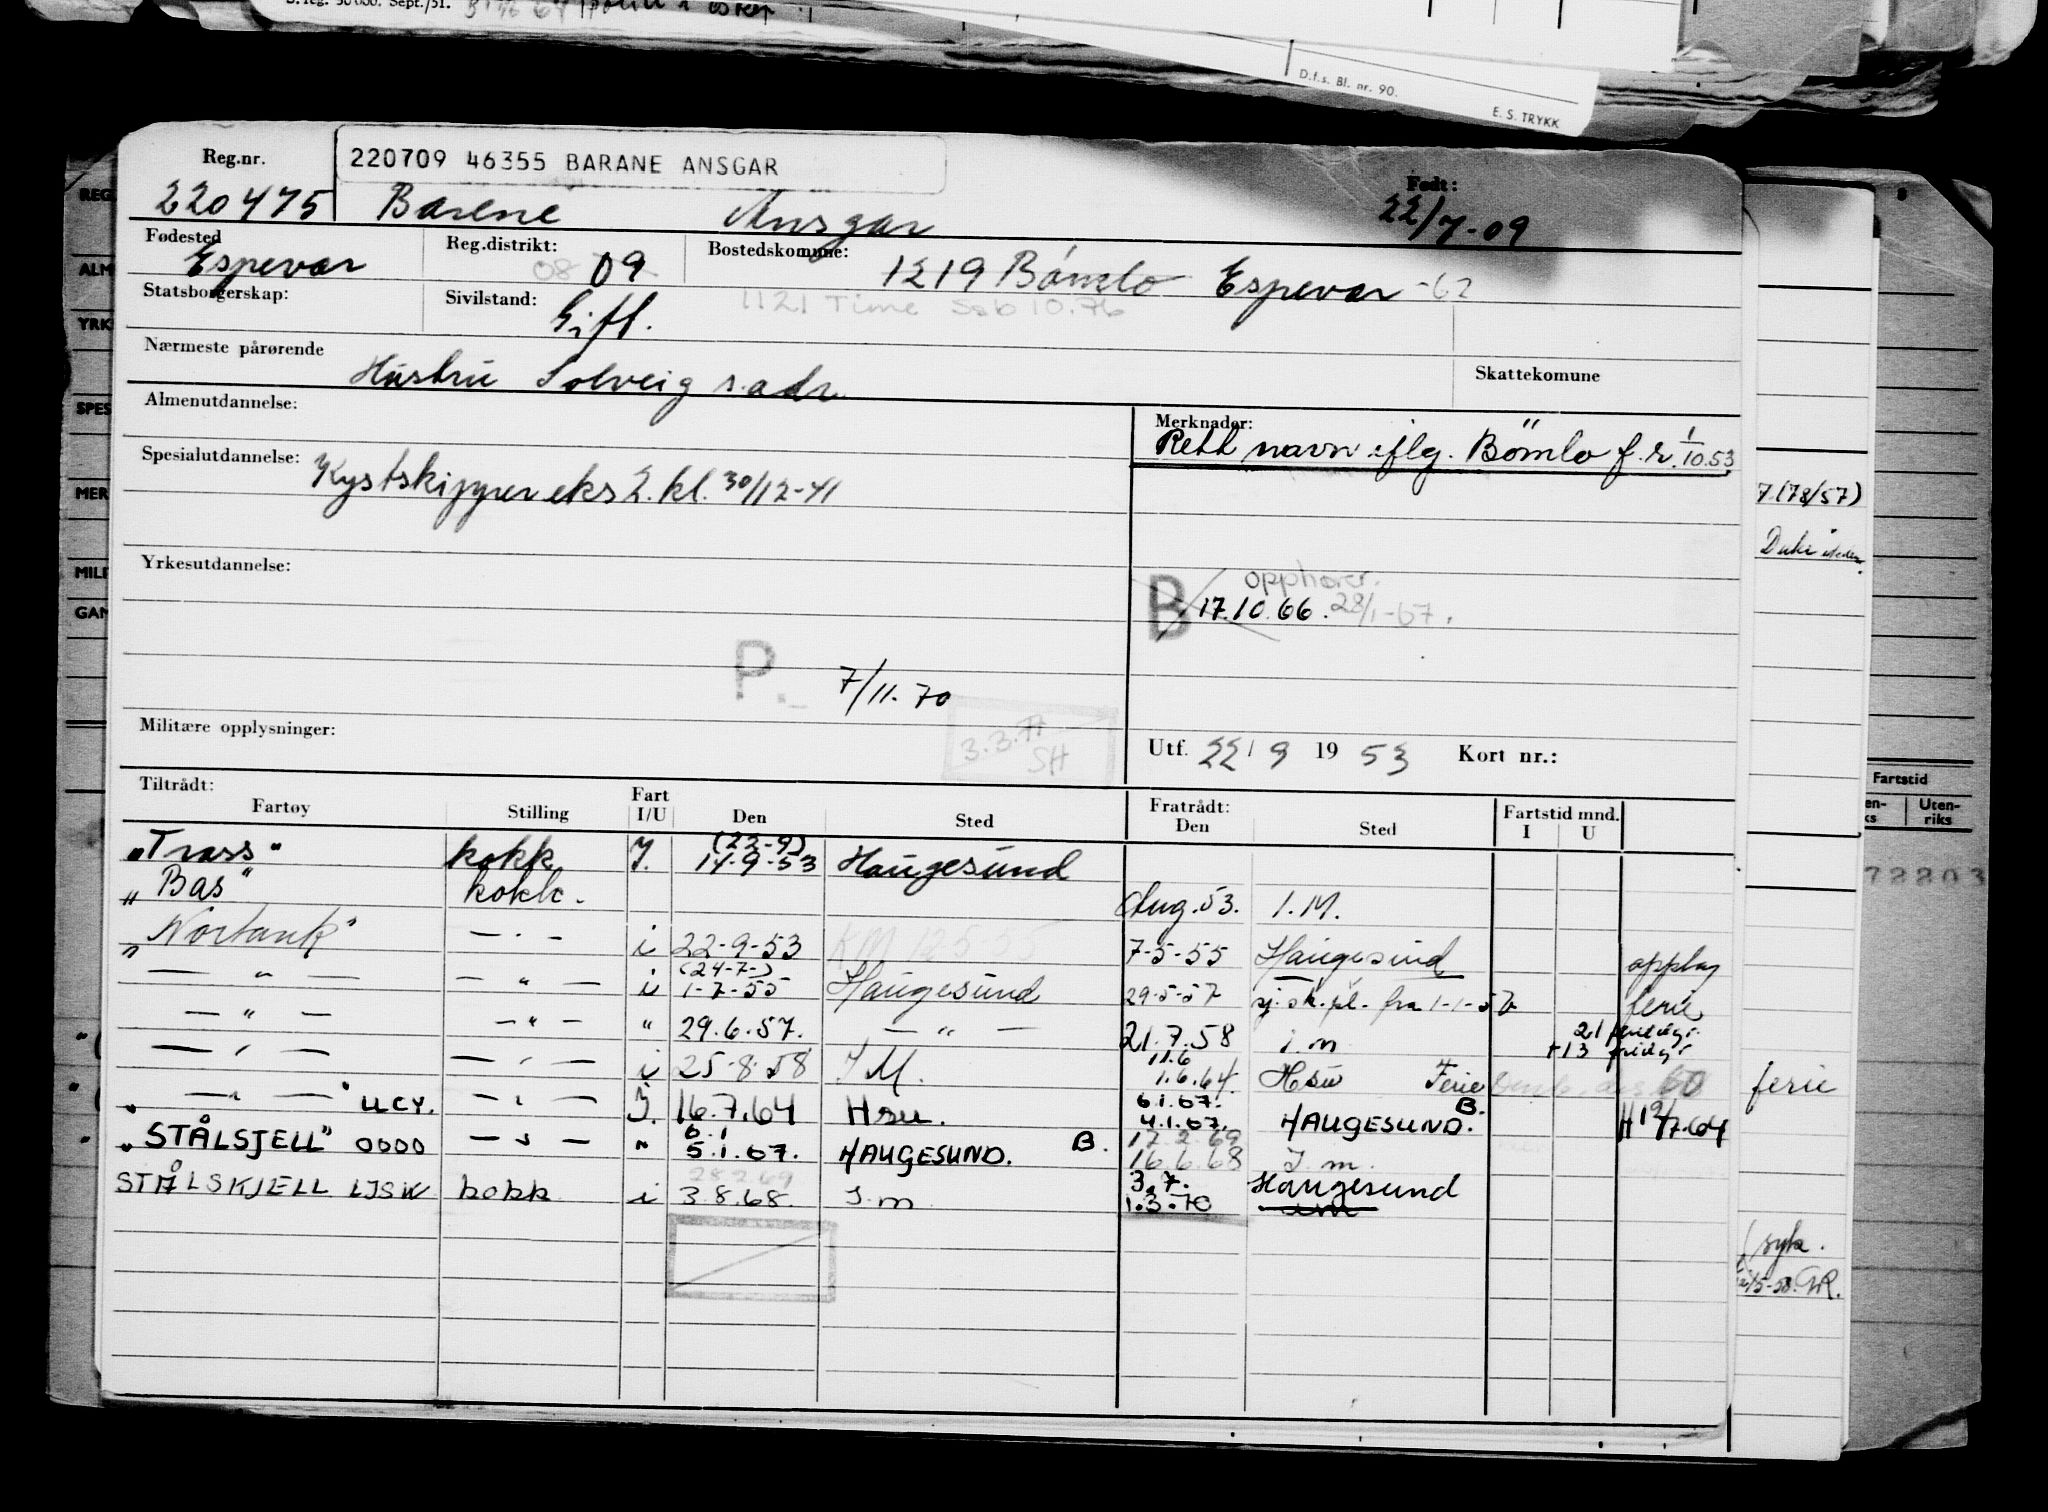 S. reg. 50 000. Sept./51.
D.f.s. Bl. nr. 90.
E. S. TRYKK
Reg.nr.
220709 46355 BARANE ANSGAR
Født:
220475 Barene Ansgar 22/7-09
Fødested Reg.distrikt: Bostedskommune:
Espevær 08 09 1219 Bømlo Espevær -62
Statsborgerskap: Sivilstand: 1121 Time Ssb 10.76
Gift.
Nærmeste pårørende Skattekomune
Hustru Solveig s. adr.
Almenutdannelse: Merknader:
Rett navn iflg. Bømlo f.r. 1/10.53
Spesialutdannelse:
Kystskipper eks 2. kl. 30/12-41
7 (78/57)
Yrkesutdannelse:
opphører.
B 17.10.66. 28/1-67.
P. 7/11.70
3.3.71
SH
Militære opplysninger:
Utf. 22/9 1953 Kort nr.:
Tiltrådt: Fratrådt:
Fartøy Stilling Fart I/U Den Sted Den Sted Fartstid mnd. I U
(22-9)
"Trass" kokk I. 14-9-53 Haugesund
"Bas" kokk. Aug. 53. I.M.
"Nortank" — " — i 22-9-53 7-5-55 Haugesund opplag
(24-7-)
— " — — " — i 1-7-55 Haugesund 29-5-57 sj.sk.pl. fra 1-1-57 ferie
— " — — " — " 29.6.57. — " — 21.7.58 i.m 21 feriedgr.
+13 fridgr
11.6
— " — — " — i 25-8-58 I M. 1.6.64. Hsu Ferie 60 ferie
6.1.67. B.
— " — " LLCY. — " — I. 16.7.64 Hsu. 4.1.67. HAUGESUND.
6.1 17.2.69
"STÅLSJELL" OOOO — " — " 5.1.67. HAUGESUND. B. 16.6.68 I.m.
28.2.69 3.7.
STÅLSKJELL LJSW kokk i 3.8.68. I.m 1.3.70 Haugesund
i m
Fartstid
Uten-
riks
72203
(syk.